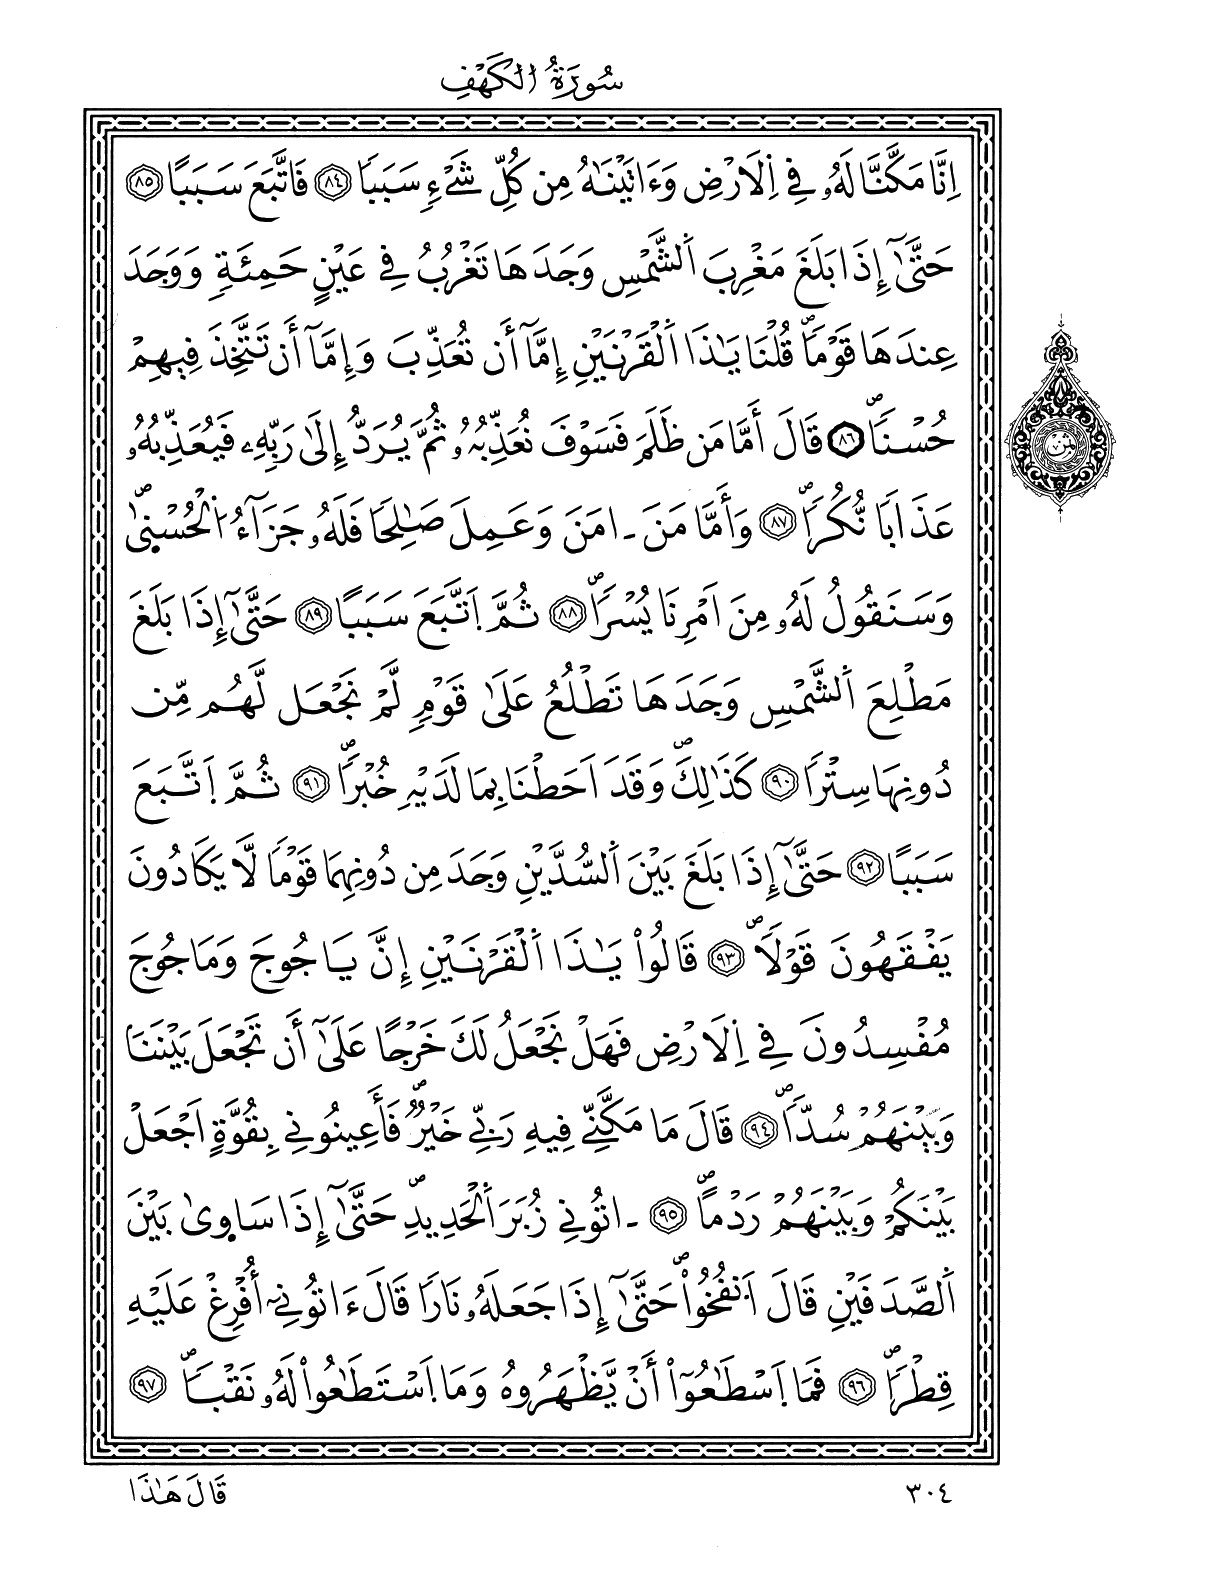 سُورَةُ الْكَهْفِ
اِنَّا مَكَّنَّا لَهُۥ فِے اِ۬لَارْضِ وَءَاتَيْنَٰهُ مِن كُلِّ شَےْءٖ سَبَباٗ ٨٤ فَاتَّبَعَ سَبَباً ٨٥
حَتَّىٰٓ إِذَا بَلَغَ مَغْرِبَ اَ۬لشَّمْسِ وَجَدَهَا تَغْرُبُ فِے عَيْنٍ حَمِئَةٖ وَوَجَدَ
عِندَهَا قَوْماٗۖ قُلْنَا يَٰذَا اَ۬لْقَرْنَيْنِ إِمَّآ أَن تُعَذِّبَ وَإِمَّآ أَن تَتَّخِذَ فِيهِمْ
حُسْناٗۖ ٨٦ قَالَ أَمَّا مَن ظَلَمَ فَسَوْفَ نُعَذِّبُهُۥ ثُمَّ يُرَدُّ إِلَىٰ رَبِّهِۦ فَيُعَذِّبُهُۥ
عَذَاباٗ نُّكُراٗۖ ٨٧ وَأَمَّا مَنَ ـ اٰمَنَ وَعَمِلَ صَٰلِحاٗ فَلَهُۥ جَزَآءُ اُ۬لْحُسْنَىٰۖ
وَسَنَقُولُ لَهُۥ مِنَ اَمْرِنَا يُسْراٗۖ ٨٨ ثُمَّ اَتَّبَعَ سَبَباً ٨٩ حَتَّىٰٓ إِذَا بَلَغَ
مَطْلِعَ اَ۬لشَّمْسِ وَجَدَهَا تَطْلُعُ عَلَىٰ قَوْمٖ لَّمْ نَجْعَل لَّهُم مِّن
دُونِهَا سِتْراٗ ٩٠ كَذَٰلِكَۖ وَقَدَ اَحَطْنَا بِمَا لَدَيْهِ خُبْراٗۖ ٩١ ثُمَّ اَتَّبَعَ
سَبَباً ٩٢ حَتَّىٰٓ إِذَا بَلَغَ بَيْنَ اَ۬لسُّدَّيْنِ وَجَدَ مِن دُونِهِمَا قَوْماٗ لَّا يَكَادُونَ
يَفْقَهُونَ قَوْلاٗۖ ٩٣ قَالُواْ يَٰذَا اَ۬لْقَرْنَيْنِ إِنَّ يَاجُوجَ وَمَاجُوجَ
مُفْسِدُونَ فِے اِ۬لَارْضِ فَهَلْ نَجْعَلُ لَكَ خَرْجاً عَلَىٰٓ أَن تَجْعَلَ بَيْنَنَا
وَبَيْنَهُمْ سُدّاٗۖ ٩٤ قَالَ مَا مَكَّنِّے فِيهِ رَبِّے خَيْرٞۖ فَأَعِينُونِے بِقُوَّةٍ اَجْعَلْ
بَيْنَكُمْ وَبَيْنَهُمْ رَدْماٗۖ ٩٥ ـ اٰتُونِے زُبَرَ اَ۬لْحَدِيدِۖ حَتَّىٰٓ إِذَا سَاوِىٰ بَيْنَ
اَ۬لصَّدَفَيْنِ قَالَ اَ۟نفُخُواْۖ حَتَّىٰٓ إِذَا جَعَلَهُۥ نَاراٗ قَالَ ءَاتُونِےٓ أُفْرِغْ عَلَيْهِ
قِطْراٗۖ ٩٦ فَمَا اَ۪سْطَٰعُوٓاْ أَنْ يَّظْهَرُوهُ وَمَا اَ۪سْتَطَٰعُواْ لَهُۥ نَقْباٗۖ ٩٧
ثمن
قَالَ هَٰذَا
٣٠٤